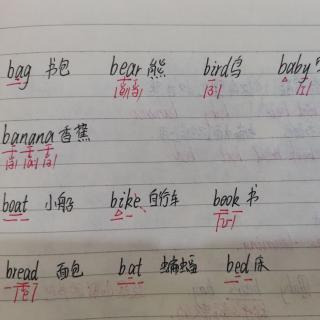 bag 书包 bear 熊 bird 鸟 baby
|ɜː| |ɪ|
banana 香蕉
boat 小船 bike 自行车 book 书
|ʊ|
bread 面包 bat 蝙蝠 bed 床
|e|